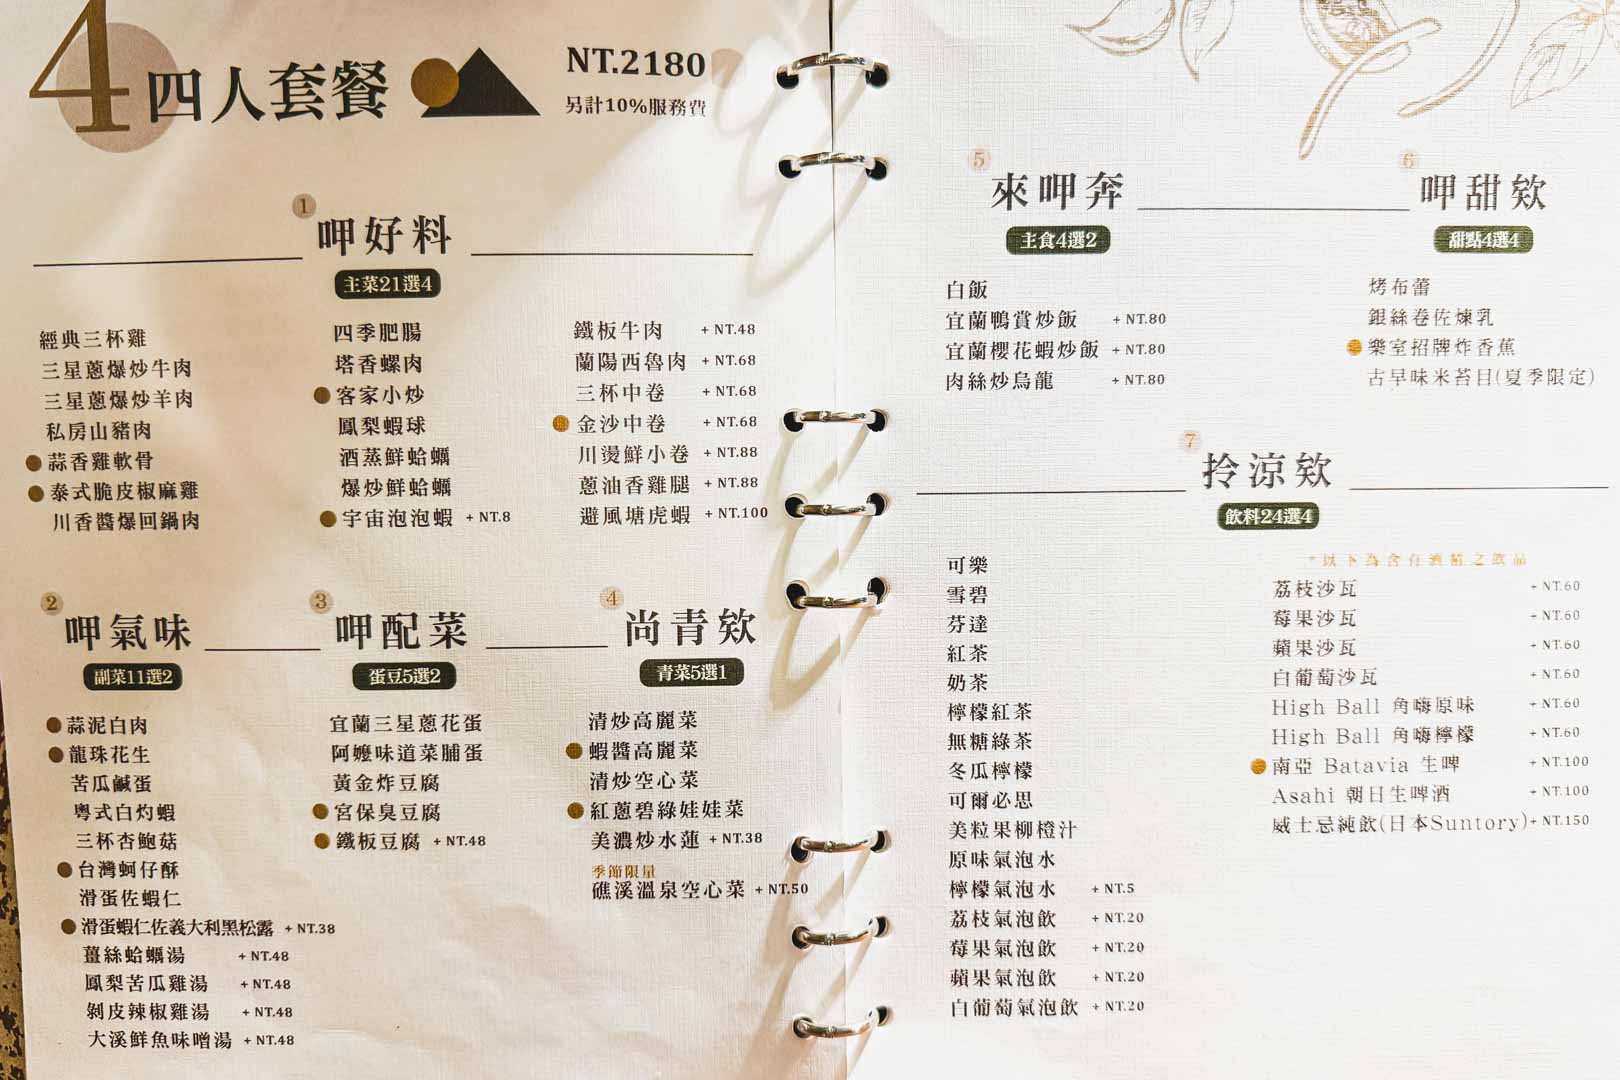 4 四人套餐
NT.2180
另計10%服務費
1
呷好料
主菜21選4
經典三杯雞
三星蔥爆炒牛肉
三星蔥爆炒羊肉
私房山豬肉
蒜香雞軟骨
泰式脆皮椒麻雞
川香醬爆回鍋肉
四季肥腸
塔香螺肉
客家小炒
鳳梨蝦球
酒蒸鮮蛤蠣
爆炒鮮蛤蠣
宇宙泡泡蝦 + NT.8
鐵板牛肉 + NT.48
蘭陽西魯肉 + NT.68
三杯中卷 + NT.68
金沙中卷 + NT.68
川燙鮮小卷 + NT.88
蔥油香雞腿 + NT.88
避風塘虎蝦 + NT.100
2
呷氣味
副菜11選2
蒜泥白肉
龍珠花生
苦瓜鹹蛋
粵式白灼蝦
三杯杏鮑菇
台灣蚵仔酥
滑蛋佐蝦仁
滑蛋蝦仁佐義大利黑松露 + NT.38
薑絲蛤蠣湯 + NT.48
鳳梨苦瓜雞湯 + NT.48
剝皮辣椒雞湯 + NT.48
大溪鮮魚味噌湯 + NT.48
3
呷配菜
蛋豆5選2
宜蘭三星蔥花蛋
阿嬤味道菜脯蛋
黃金炸豆腐
宮保臭豆腐
鐵板豆腐 + NT.48
4
尚青欸
青菜5選1
清炒高麗菜
蝦醬高麗菜
清炒空心菜
紅蔥碧綠娃娃菜
美濃炒水蓮 + NT.38
季節限量
礁溪溫泉空心菜 + NT.50
5
來呷奔
主食4選2
白飯
宜蘭鴨賞炒飯 + NT.80
宜蘭櫻花蝦炒飯 + NT.80
肉絲炒烏龍 + NT.80
6
呷甜欸
甜點4選4
烤布蕾
銀絲卷佐煉乳
樂室招牌炸香蕉
古早味米苔目(夏季限定)
7
拎涼欸
飲料24選4
可樂
雪碧
芬達
紅茶
奶茶
檸檬紅茶
無糖綠茶
冬瓜檸檬
可爾必思
美粒果柳橙汁
原味氣泡水
檸檬氣泡水 + NT.5
荔枝氣泡飲 + NT.20
莓果氣泡飲 + NT.20
蘋果氣泡飲 + NT.20
白葡萄氣泡飲 + NT.20
*以下為含有酒精之飲品
荔枝沙瓦 + NT.60
莓果沙瓦 + NT.60
蘋果沙瓦 + NT.60
白葡萄沙瓦 + NT.60
High Ball 角嗨原味 + NT.60
High Ball 角嗨檸檬 + NT.60
南亞 Batavia 生啤 + NT.100
Asahi 朝日生啤酒 + NT.100
威士忌純飲(日本Suntory)+ NT.150